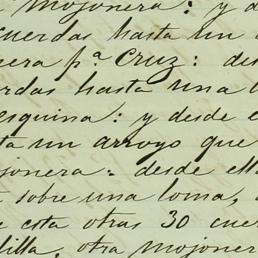 mojonera: y d
cuerdas hasta un
nera pª Cruz: des
rdas hasta una l
esquina: y desde e
ta un arroyo que
jonera: desde ella
sobre una loma,
e esta otras 30 cuer
dilla, otra mojoner